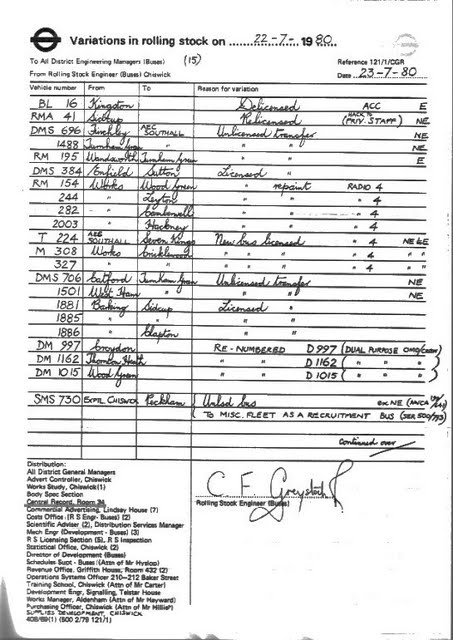 Variations in rolling stock on 22-7- 1980
To All District Engineering Managers (Buses) (15) Reference 121/1/CGR
From Rolling Stock Engineer (Buses) Chiswick Date 23-7-80
Vehicle number From To Reason for variation
BL 16 Kingston Delicensed ACC E
RMA 41 Sidcup Relicensed (BACK TO PRIV. STAFF) NE
DMS 696 Finchley AEC SOUTHALL Unlicensed transfer NE
1488 Turnham Green " " NE
RM 195 Wandsworth Turnham Green " " E
DMS 384 Enfield Sutton Licensed "
RM 154 Works Wood Green " repaint RADIO 4
244 " Leyton " " " 4
282 " Camberwell " " " 4
2003 " Hackney " " " 4
T 224 AEC SOUTHALL Seven Kings New bus licensed " 4 NE & E
M 308 Works Cricklewood " " " " 4 " "
327 " " " " " " 4 " "
DMS 706 Catford Turnham Green Unlicensed transfer NE
1501 West Ham " " " NE
1881 Barking Sidcup Licensed "
1885 " " " "
1886 " Clapton " "
DM 997 Croydon RE-NUMBERED D 997 (DUAL PURPOSE OMO/CREW)
DM 1162 Thornton Heath " " D 1162 ( " " " )
DM 1015 Wood Green " " D 1015 ( " " " )
SMS 730 EXPTL CHISWICK Peckham Unlsd bus
TO MISC. FLEET AS A RECRUITMENT BUS
Continued over
Distribution:
All District General Managers
Advert Controller, Chiswick
Works Study, Chiswick(1)
Body Spec Section
Central Record, Room 34
Commercial Advertising, Lindsey House (7)
Costs Office (R S Engr- Buses) (2)
Scientific Adviser (2), Distribution Services Manager
Mech Engr (Development - Buses) (3)
R S Licensing Section (5), R S Inspection
Statistical Office, Chiswick (2)
Director of Development (Buses)
Schedules Supt - Buses (Attn of Mr Hyslop)
Revenue Office, Griffith House, Room 432 (2)
Operations Systems Officer 210-212 Baker Street
Training School, Chiswick (Attn of Mr Carter)
Development Engr, Signalling, Telstar House
Works Manager, Aldenham (Attn of Mr Hayward)
Purchasing Officer, Chiswick (Attn of Mr Hillier)
SUPPLIES DEVELOPMENT, CHISWICK
408/89(1) (500 2/79 121/1)
Rolling Stock Engineer (Buses)